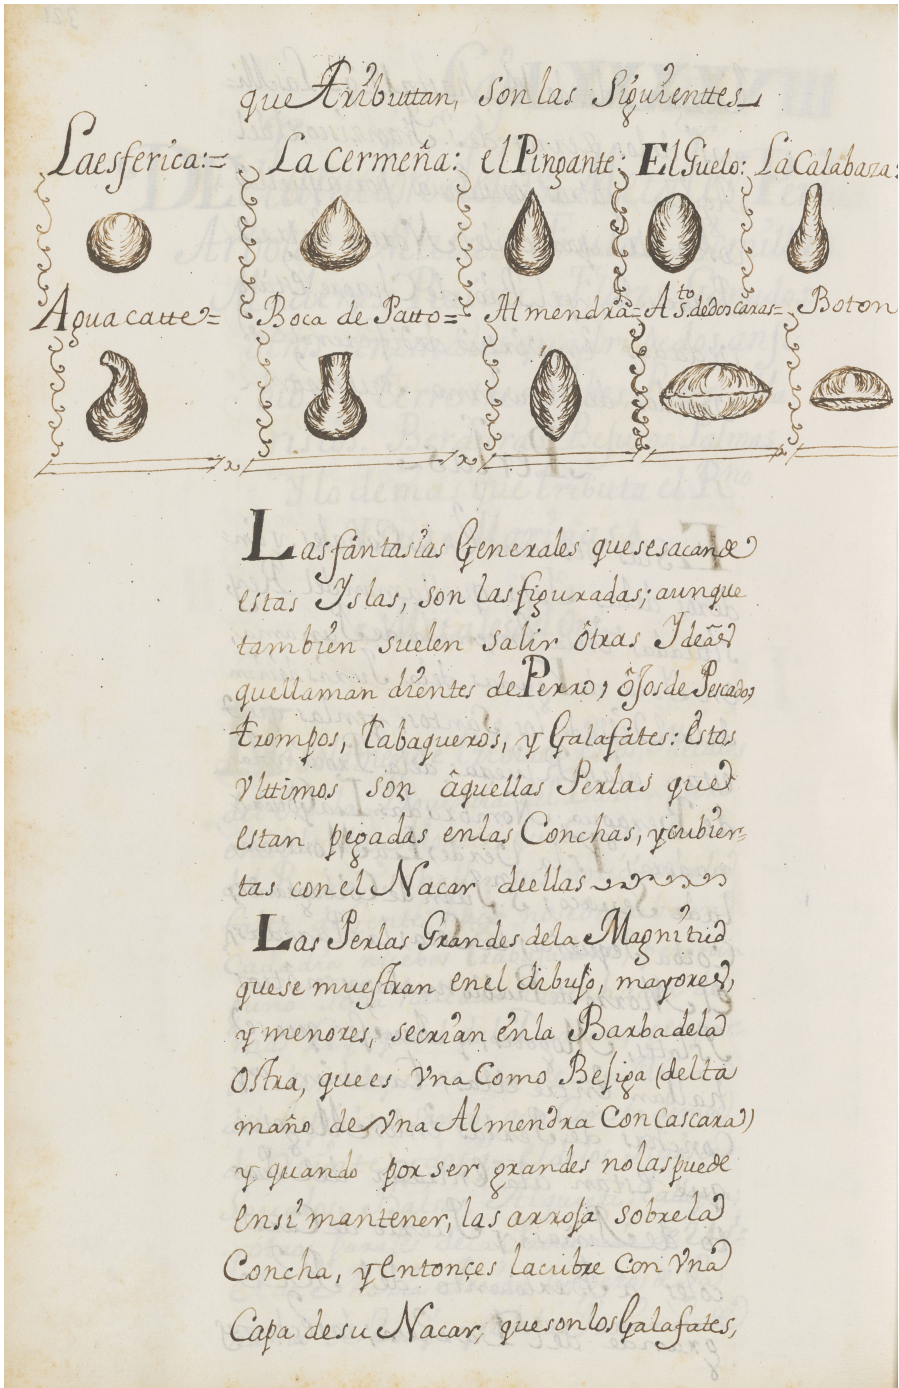 que Tributtan, son las Siguienttes
La esferica:= La Cermeña: el Pingante: El Guelo: La Calabaza:
Aguacatte= Boca de Patto= Almendra= A.to s. de dos caras= Boton
Las fantasias Generales que se sacan de
estas Yslas, son las figuradas; aunque
tambien suelen salir ôtras Ydeas
que llaman dientes de Perro, ôJos de Pescado,
trompos, tabaqueros, y Galafates: Estos
Vlttimos son âquellas Perlas que
estan pegadas en las Conchas, y cubier-
tas con el Nacar de ellas
Las Perlas Grandes de la Magnitud
que se muestran en el dibujo, mayores,
y menores, se crian en la Barba de la
Ostra, que es Vna Como Besiga (del ta
maño de Vna Almendra Con Cascara)
y quando por ser grandes no las puede
en si mantener, las arroja sobre la
Concha, y Entonçes la cubre Con Vna
Capa de su Nacar, que son los Galafates,